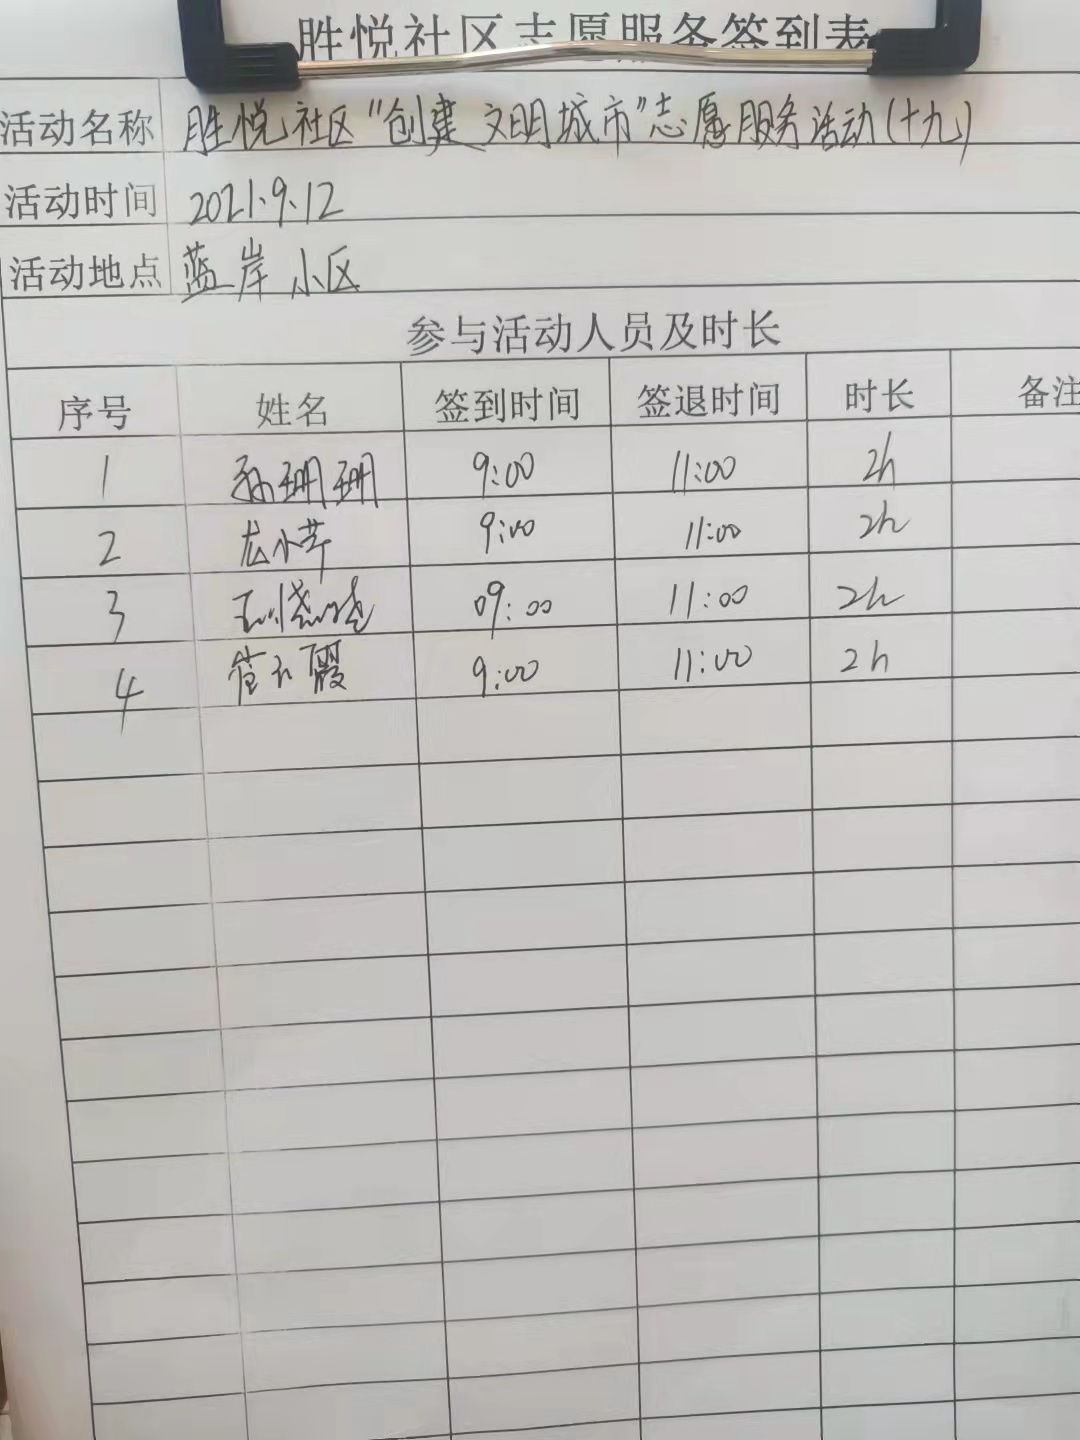 胜悦社区志愿服务签到表
活动名称 胜悦社区“创建文明城市”志愿服务活动(十九)
活动时间 2021.9.12
活动地点 蓝岸小区
参与活动人员及时长
序号 姓名 签到时间 签退时间 时长 备注
1 孙珊珊 9:00 11:00 2h
2 9:00 11:00 2h
3 09:00 11:00 2h
4 9:00 11:00 2h